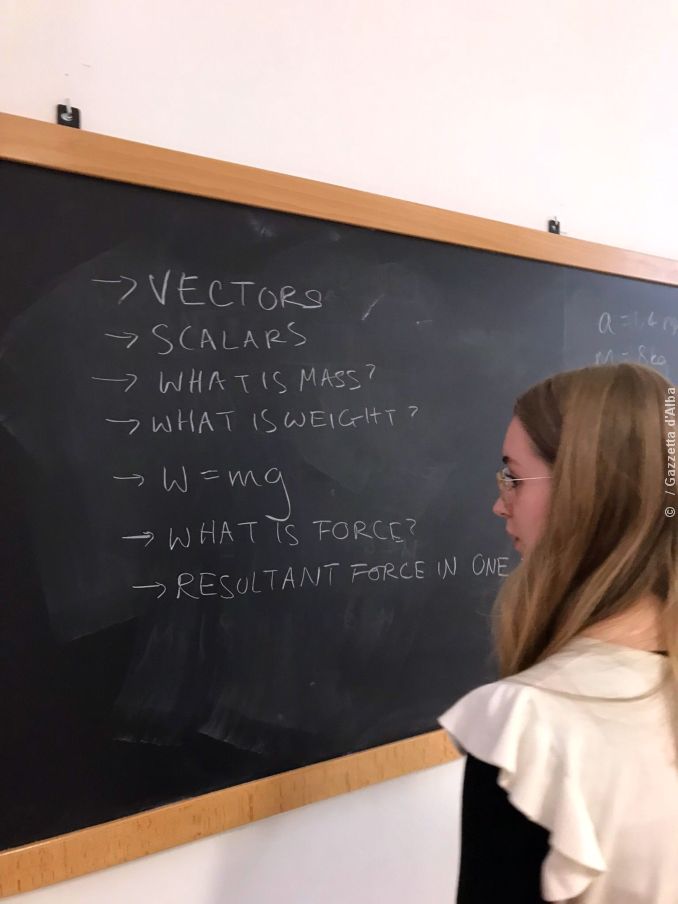 → VECTORS
→ SCALARS
→ WHAT IS MASS?
→ WHAT IS WEIGHT?
→ W = mg
→ WHAT IS FORCE?
→ RESULTANT FORCE IN ONE
a =
m = 8kg
© / Gazzetta d'Alba